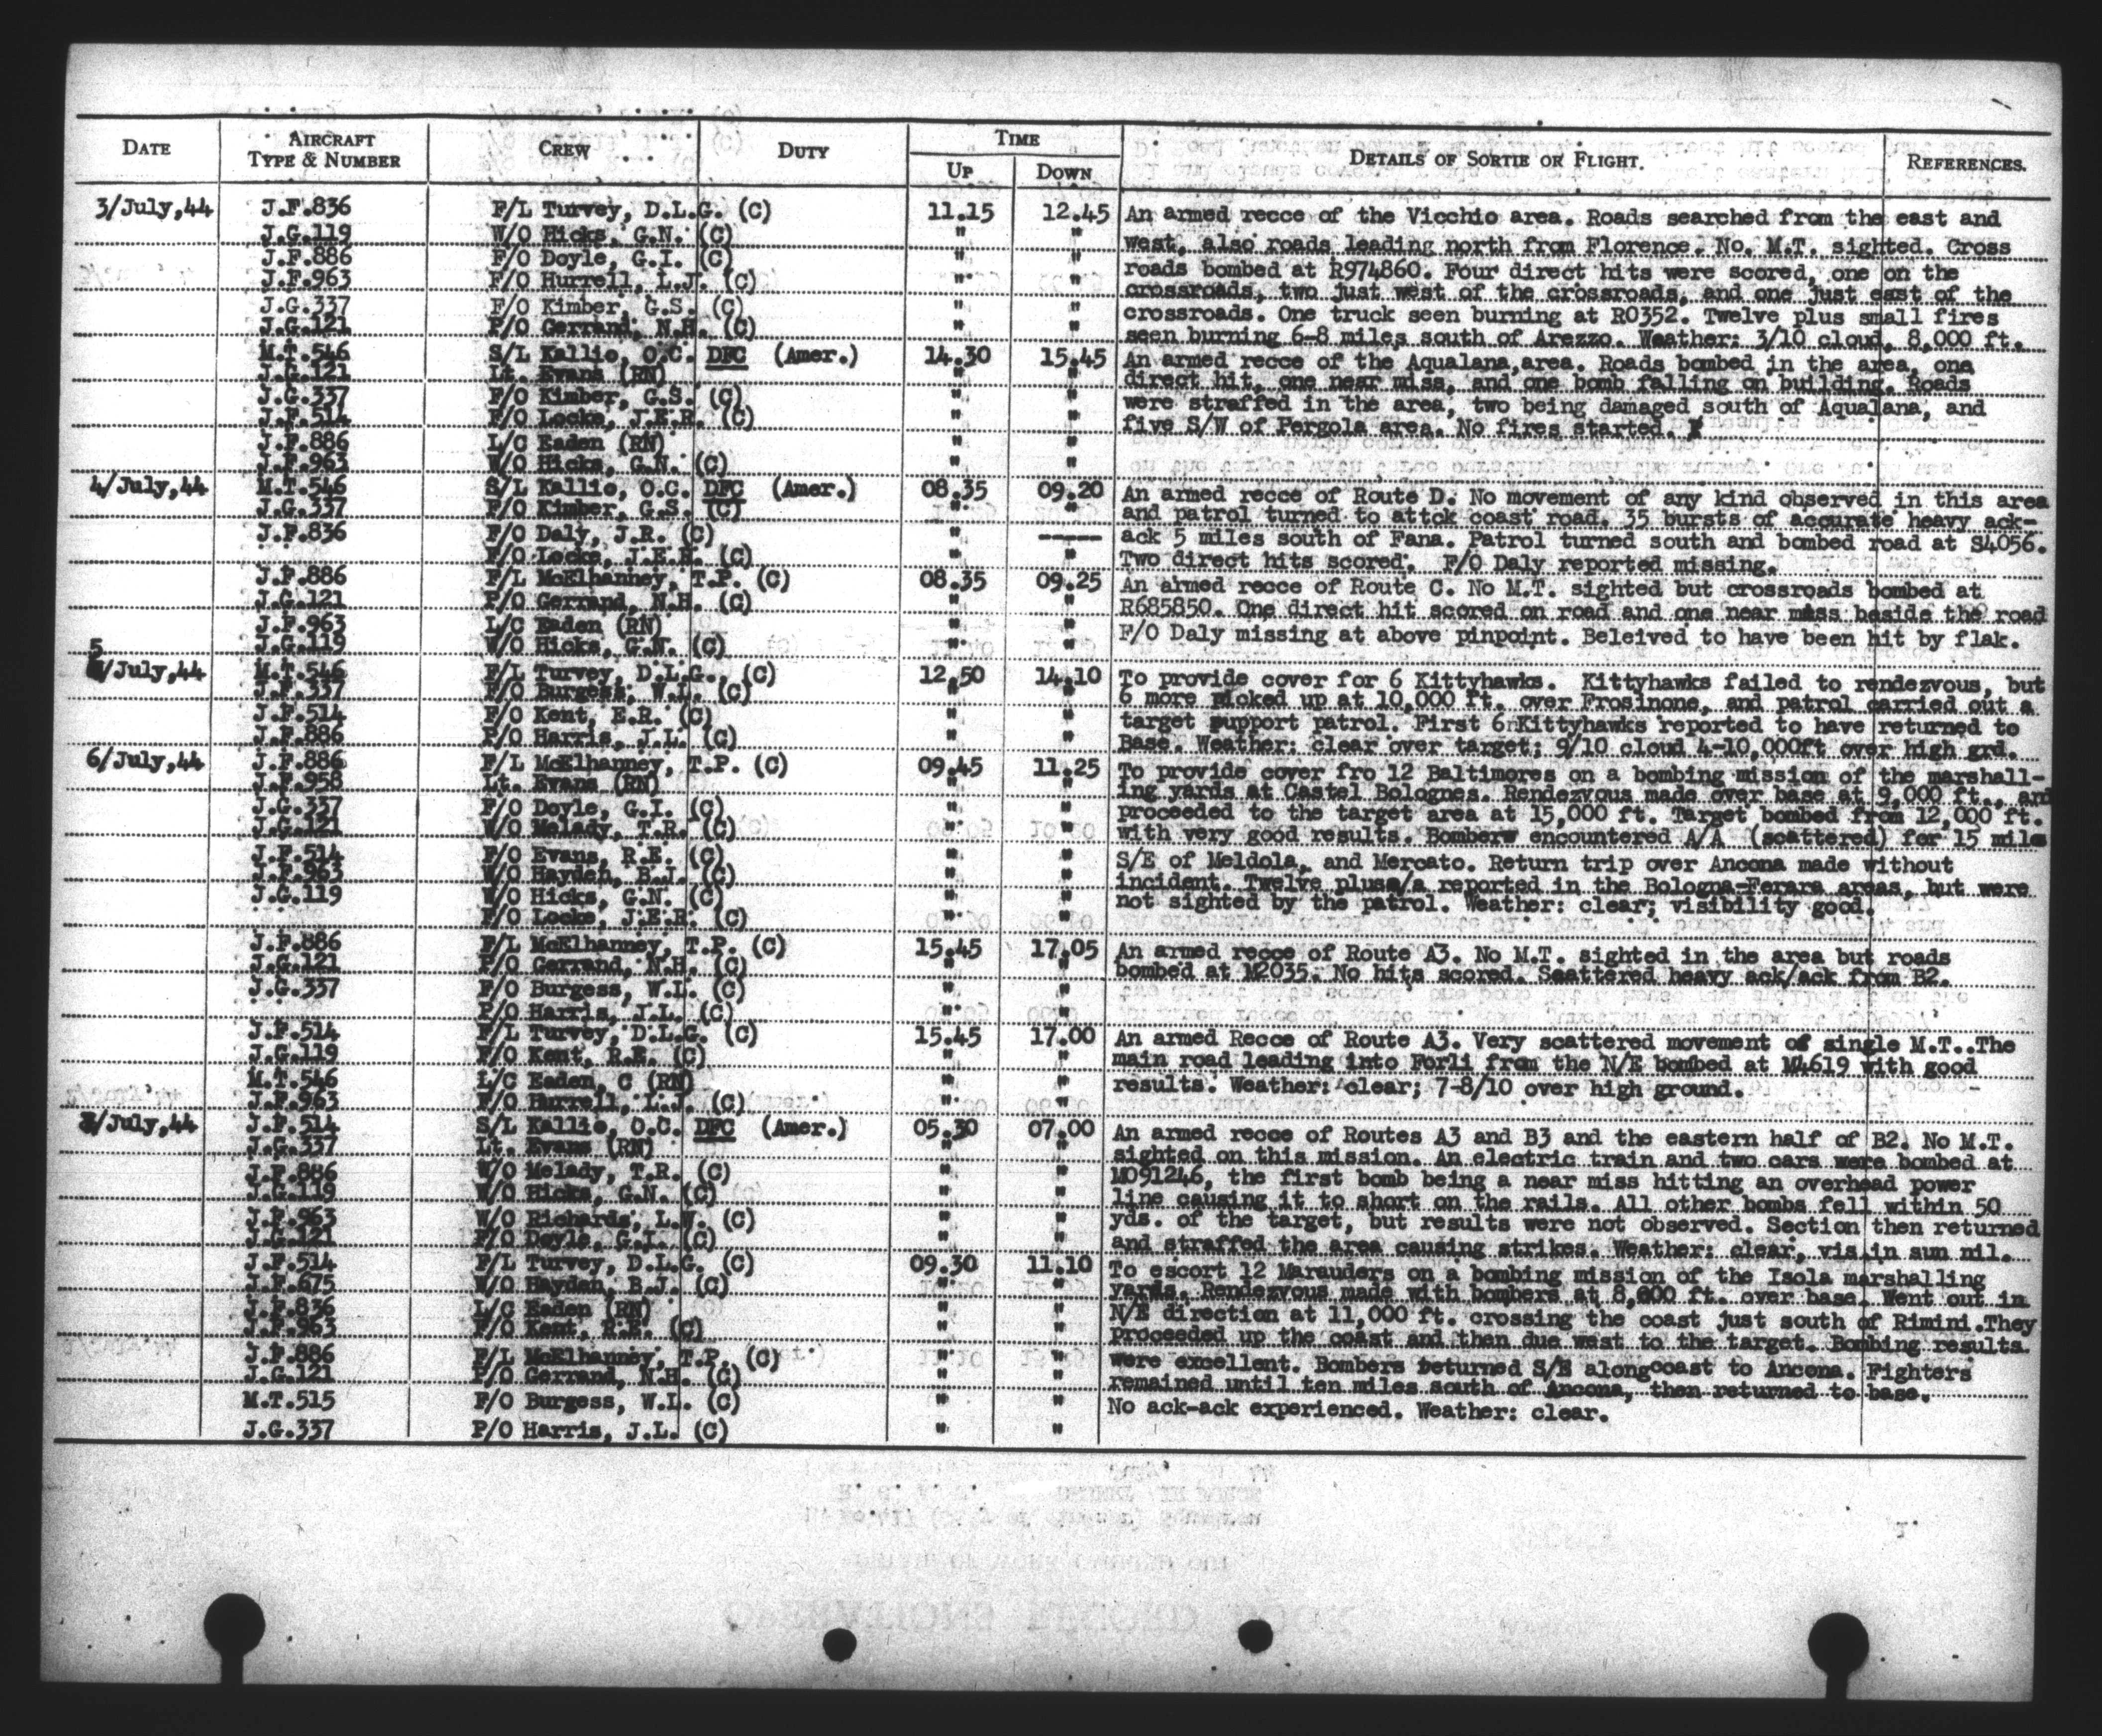 DATE AIRCRAFT TYPE & NUMBER CREW DUTY TIME UP DOWN DETAILS OF SORTIE OR FLIGHT. REFERENCES.
3/July,44 J.F.836 F/L Turvey, D.L.G. (C) 11.15 12.45 An armed recce of the Vicchio area. Roads searched from the east and
J.G.119 W/O Hicks, G.N. (C) " " west, also roads leading north from Florence. No. M.T. sighted. Cross
J.F.886 F/O Doyle, G.I. (C) " " roads bombed at R974860. Four direct hits were scored, one on the
J.F.963 F/O Hurrell, L.J. (C) " " crossroads, two just west of the crossroads, and one just east of the
J.G.337 F/O Kimber, G.S. (C) " " crossroads. One truck seen burning at R0352. Twelve plus small fires
J.G.121 P/O Gerrand, N.H. (C) " " seen burning 6-8 miles south of Arezzo. Weather: 3/10 cloud, 8,000 ft.
M.T.546 S/L Kallio, O.C. DFC (Amer.) 14.30 15.45 An armed recce of the Aqualana,area. Roads bombed in the area, one
J.G.121 Lt. Evans (RN) " " direct hit, one near miss, and one bomb falling on building. Roads
J.G.337 F/O Kimber, G.S. (C) " " were straffed in the area, two being damaged south of Aqualana, and
J.F.514 F/O Locke, J.E.R. (C) " " five S/W of Pergola area. No fires started.
J.F.886 L/C Eaden (RN) " "
J.F.963 W/O Hicks, G.N. (C) " "
4/July,44 M.T.546 S/L Kallio, O.C. DFC (Amer.) 08.35 09.20 An armed recce of Route D. No movement of any kind observed in this area
J.G.337 F/O Kimber, G.S. (C) " " and patrol turned to attck coast road. 35 bursts of accurate heavy ack-
J.F.836 F/O Daly, J.R. (C) " ----- ack 5 miles south of Fana. Patrol turned south and bombed road at S4056.
F/O Locke, J.E.R. (C) " " Two direct hits scored. F/O Daly reported missing.
J.F.886 F/L McElhanney, T.P. (C) 08.35 09.25 An armed recce of Route C. No M.T. sighted but crossroads bombed at
J.G.121 P/O Gerrand, N.H. (C) " " R685850. One direct hit scored on road and one near mess beside the road
J.F.963 L/C Eaden (RN) " " F/O Daly missing at above pinpoint. Beleived to have been hit by flak.
J.G.119 W/O Hicks, G.N. (C) " "
5/July,44 M.T.546 F/L Turvey, D.L.G., (C) 12.50 14.10 To provide cover for 6 Kittyhawks. Kittyhawks failed to rendezvous, but
J.F.337 F/O Burgess, W.L. (C) " " 6 more picked up at 10,000 ft. over Frosinone, and patrol carried out a
J.F.514 F/O Kent, E.R. (C) " " target support patrol. First 6 Kittyhawks reported to have returned to
J.F.886 P/O Harris, J.L. (C) " " Base. Weather: clear over target; 9/10 cloud 4-10,000ft over high grd.
6/July,44 J.F.886 F/L McElhanney, T.P. (C) 09.45 11.25 To provide cover fro 12 Baltimores on a bombing mission of the marshall-
J.F.958 Lt. Evans (RN) " " ing yards at Castel Bolognes. Rendezvous made over base at 9,000 ft., and
J.G.337 F/O Doyle, G.I. (C) " " proceeded to the target area at 15,000 ft. Target bombed from 12,000 ft.
J.G.121 W/O Melady, T.R. (C) " " with very good results. Bombers encountered A/A (scattered) for 15 mile
J.F.514 F/O Evans, R.E. (C) " " S/E of Meldola, and Mercato. Return trip over Ancona made without
J.F.963 W/O Hayden, B.J. (C) " " incident. Twelve plusa/a reported in the Bologna-Ferara areas, but were
J.G.119 W/O Hicks, G.N. (C) " " not sighted by the patrol. Weather: clear; visibility good.
F/O Locke, J.E.R. (C) " "
J.F.886 F/L McElhanney, T.P. (C) 15.45 17.05 An armed recce of Route A3. No M.T. sighted in the area but roads
J.G.121 P/O Gerrand, N.H. (C) " " bombed at M2035. No hits scored. Scattered heavy ack/ack from B2.
J.G.337 F/O Burgess, W.L. (C) " "
P/O Harris, J.L. (C) " "
J.F.514 F/L Turvey, D.L.G. (C) 15.45 17.00 An armed Recce of Route A3. Very scattered movement of single M.T..The
J.G.119 F/O Kent, R.E. (C) " " main road leading into Forli from the N/E bombed at M4619 with good
M.T.546 L/C Eaden, C (RN) " " results. Weather: clear; 7-8/10 over high ground.
J.F.963 F/O Hurrell, L.J. (C) " "
/July,44 J.F.514 S/L Kallio, O.C. DFC (Amer.) 05.30 07.00 An armed recce of Routes A3 and B3 and the eastern half of B2. No M.T.
J.G.337 Lt. Evans (RN) " " sighted on this mission. An electric train and two cars were bombed at
J.F.886 W/O Melady, T.R. (C) " " M091246, the first bomb being a near miss hitting an overhead power
J.G.119 W/O Hicks, G.N. (C) " " line causing it to short on the rails. All other bombs fell within 50
J.F.963 W/O Richards, L.W. (C) " " yds. of the target, but results were not observed. Section then returned
J.G.121 F/O Doyle, G.I. (C) " " and straffed the area causing strikes. Weather: clear, vis.in sun nil.
J.F.514 F/L Turvey, D.L.G. (C) 09.30 11.10 To escort 12 Marauders on a bombing mission of the Isola marshalling
J.F.675 W/O Hayden, B.J. (C) " " yards. Rendezvous made with bombers at 8,000 ft. over base. Went out in
J.F.836 L/C Eaden (RN) " " N/E direction at 11,000 ft. crossing the coast just south of Rimini.They
J.F.963 F/O Kent, R.E. (C) " " proceeded up the coast and then due west to the target. Bombing results
J.F.886 F/L McElhanney, T.P. (C) " " were excellent. Bombers returned S/E alongcoast to Ancona. Fighters
J.G.121 P/O Gerrand, N.H. (C) " " remained until ten miles south of Ancona, then returned to base.
M.T.515 F/O Burgess, W.L. (C) " " No ack-ack experienced. Weather: clear.
J.G.337 P/O Harris, J.L. (C) " "